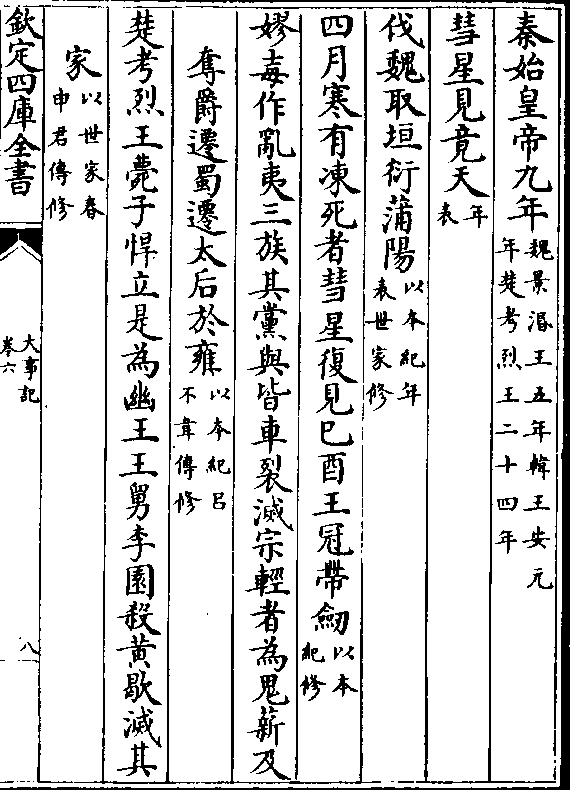 秦始皇帝九年魏景湣王五年韓王安元年楚考烈王二十四年
彗星見竟天年表
伐魏取垣衍蒲陽以本紀年表世家修
四月寒有凍死者彗星復見巳酉王冠帶劒以本紀修
嫪毐作亂夷三族其黨與皆車裂滅宗輕者為鬼薪及
奪爵遷蜀遷太后於雍以本紀呂不韋傳修
楚考烈王薨子悍立是為幽王王舅李園殺黄歇滅其
家以世家春申君傳修
欽定四庫全書
大事記
卷六
八